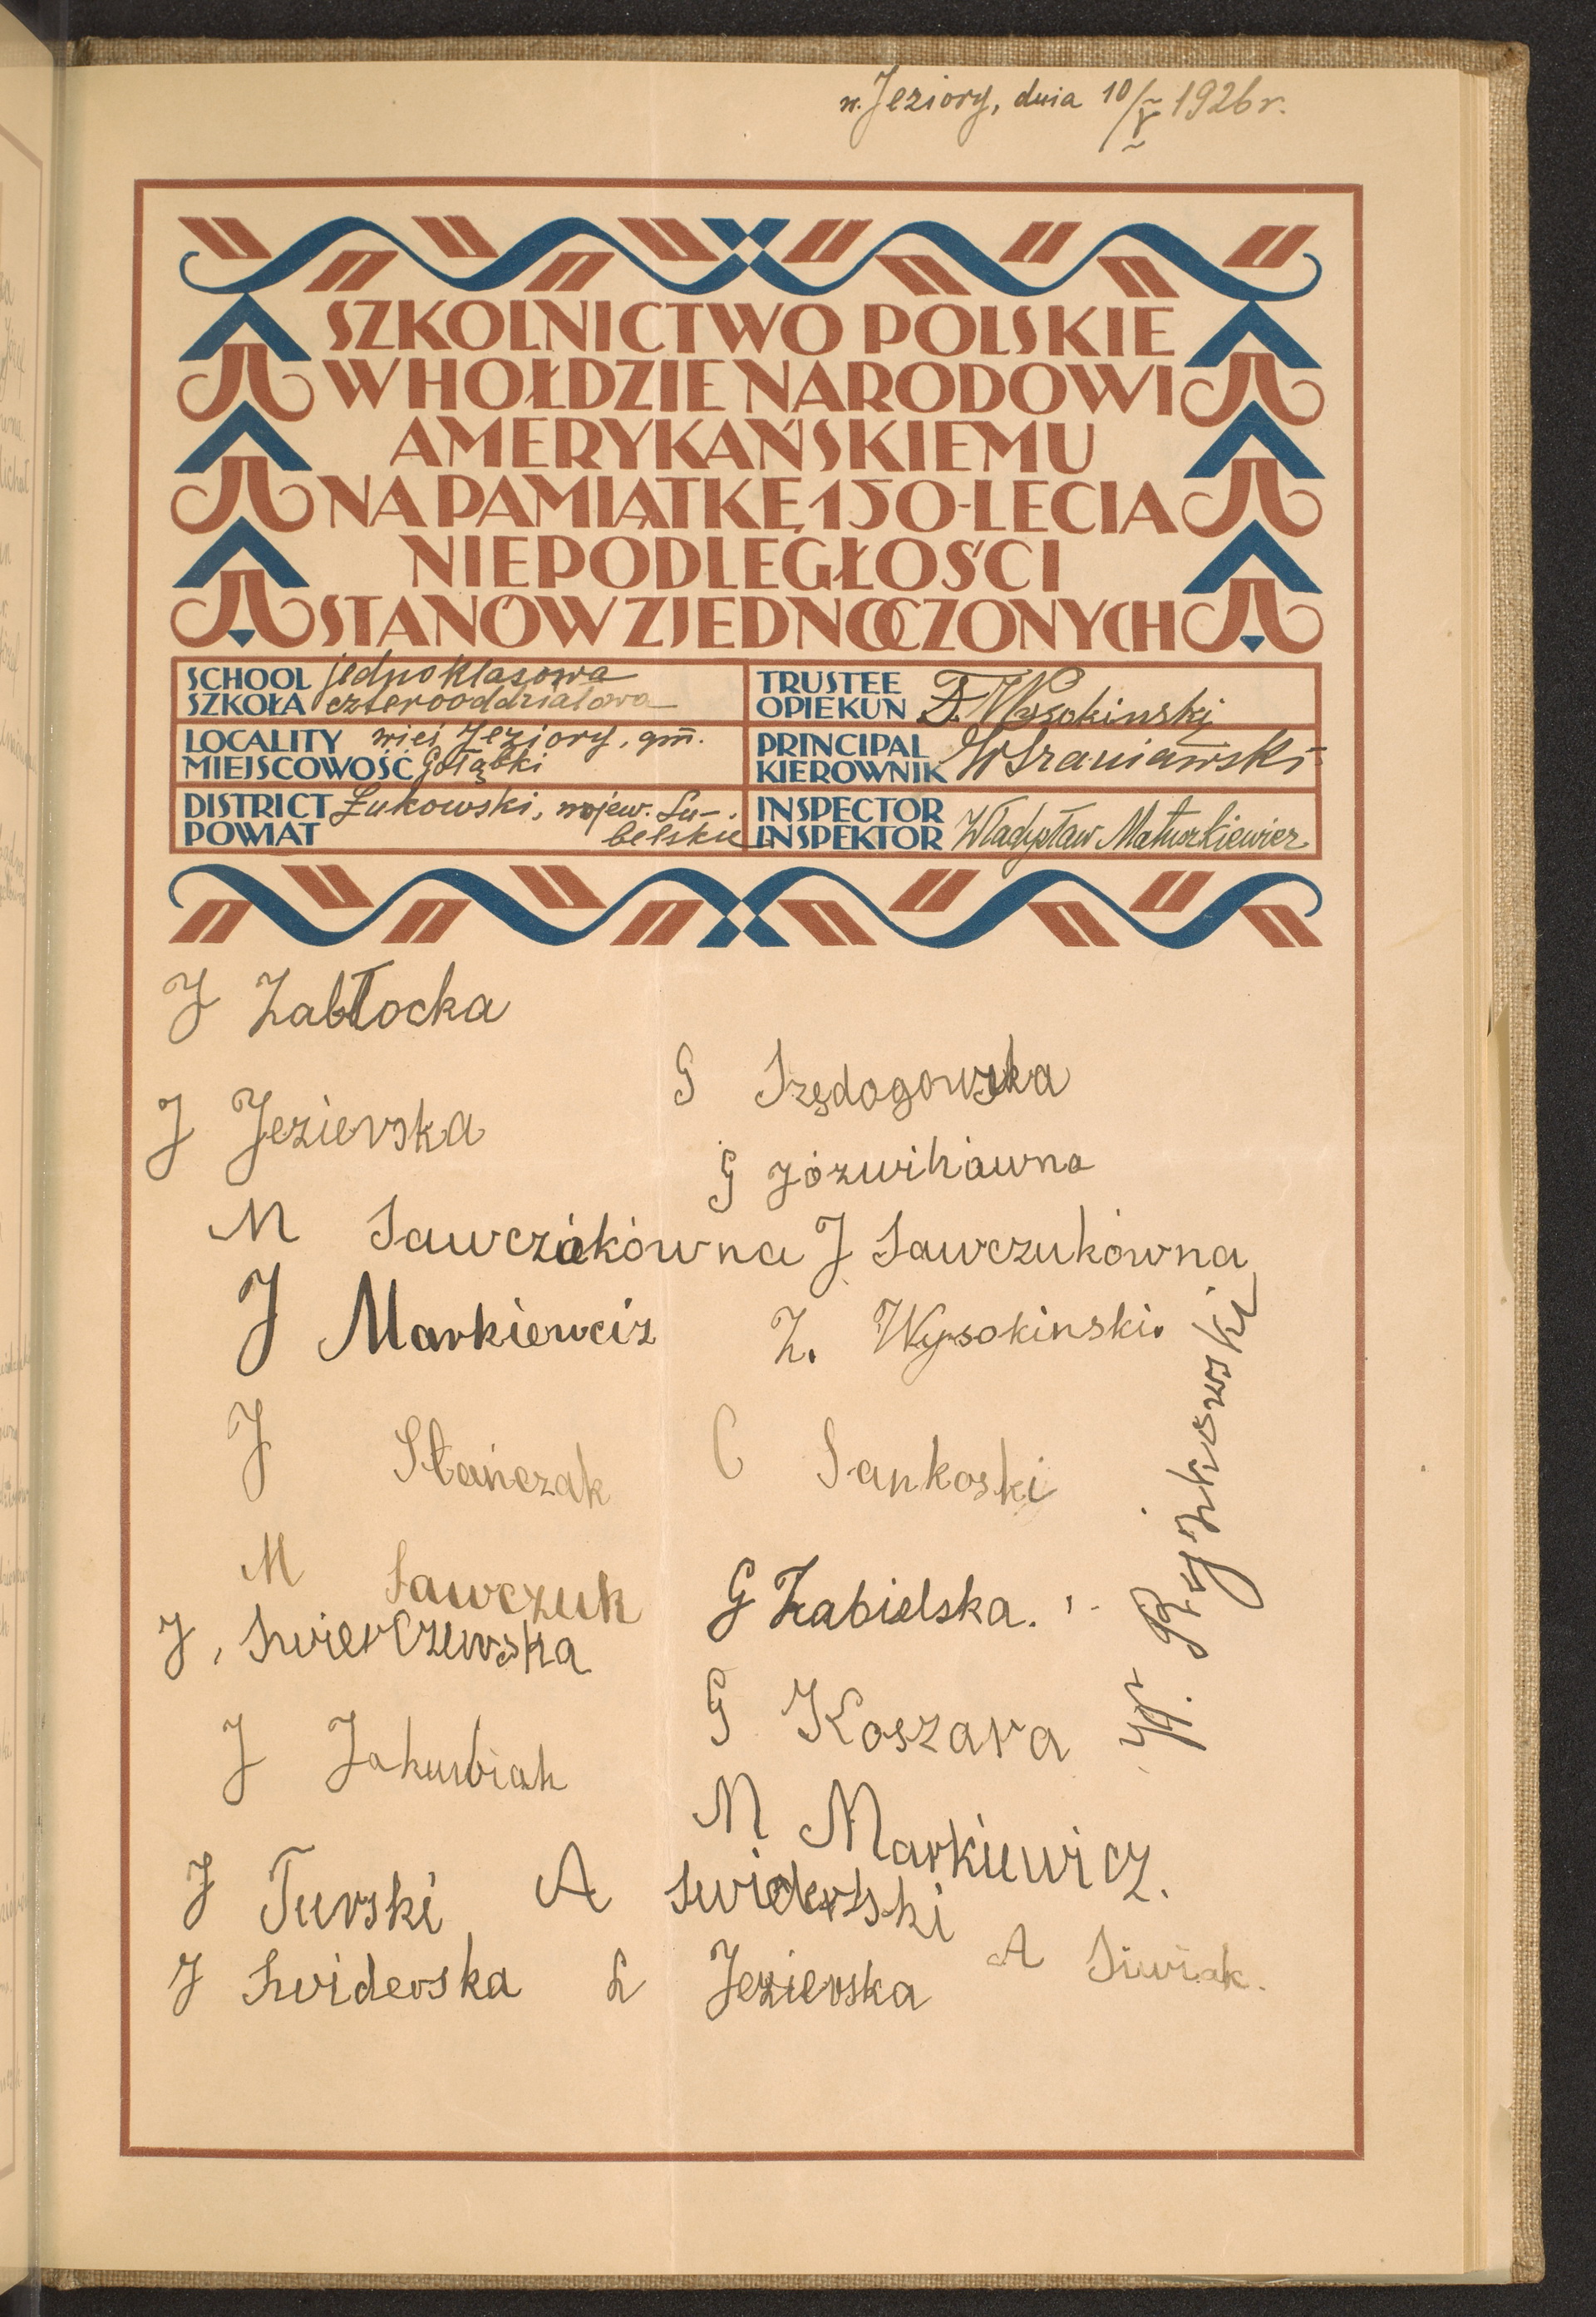 w. Jeziory, dnia 10/V 1926 r.
SZKOLNICTWO POLSKIE
W HOŁDZIE NARODOWI
AMERYKAŃSKIEMU
NA PAMIĄTKĘ 150-LECIA
NIEPODLEGŁOŚCI
STANÓW ZJEDNOCZONYCH
SCHOOL jednoklasowa
SZKOŁA czterooddziałowa
TRUSTEE
OPIEKUN F. Wysokinski
LOCALITY wieś Jeziory, gm.
MIEJSCOWOŚĆ Gołąbki
PRINCIPAL
KIEROWNIK
DISTRICT Łukowski, wojew. Lu-
POWIAT belskie
INSPECTOR
INSPEKTOR Władysław
J Zabłocka
G
J Jezierska
G Józwikówna
M Sawczukówna J Sawczukówna
J Markiewciz
Z. Wysokinski.
J Stańczak
C Sankoski
M Sawczuk
G Zabielska.
J. Swierczewska
G Koszara
J Jakubiak
M Markiewicz.
J Turski A Swiderski
J Swiderska L Jezierska
A Siwiak.